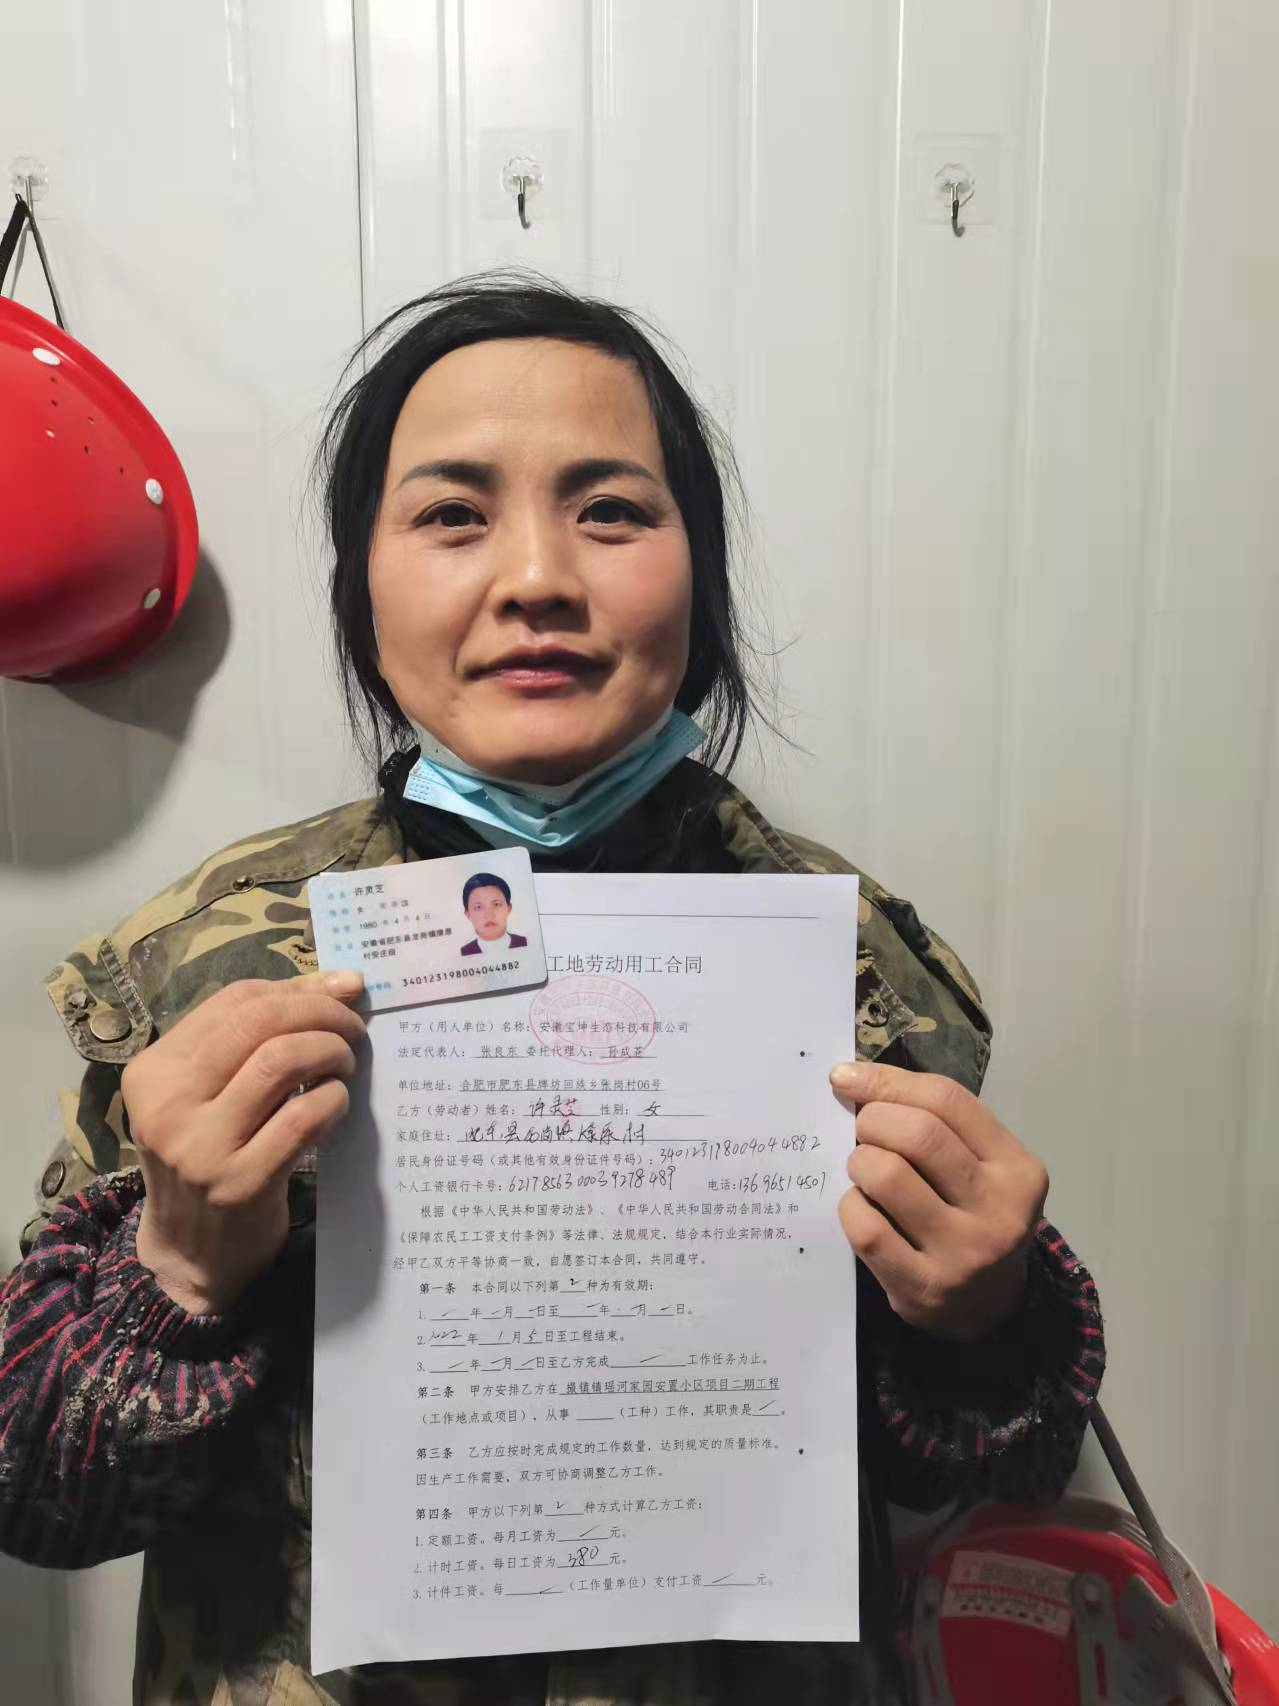 姓名 许灵芝
性别 女 民族 汉
出生 1980 年 4 月 4 日
住址 安徽省肥东县龙岗镇
340123198004044882
工地劳动用工合同
甲方（用人单位）名称：安徽宝坤生态科技有限公司
法定代表人：张良东 委托代理人：孙成荃
单位地址：合肥市肥东县牌坊回族乡张岗村06号
乙方（劳动者）姓名：许灵芝 性别：女
家庭住址：肥东县 村
居民身份证号码（或其他有效身份证件号码）：340123198004044882
个人工资银行卡号：6217856300039278489 电话：13696514507
根据《中华人民共和国劳动法》、《中华人民共和国劳动合同法》和
《保障农民工工资支付条例》等法律、法规规定，结合本行业实际情况，
经甲乙双方平等协商一致，自愿签订本合同，共同遵守。
第一条 本合同以下列第2种为有效期：
1. 年 月 日至 年 月 日。
2. 2022年1月5日至工程结束。
3. 年 月 日至乙方完成 工作任务为止。
第二条 甲方安排乙方在撮镇镇瑶河家园安置小区项目二期工程
（工作地点或项目），从事 （工种）工作，其职责是 。
第三条 乙方应按时完成规定的工作数量，达到规定的质量标准。
因生产工作需要，双方可协商调整乙方工作。
第四条 甲方以下列第2种方式计算乙方工资：
1. 定额工资。每月工资为 元。
2. 计时工资。每日工资为380元。
3. 计件工资。每 （工作量单位）支付工资 元。